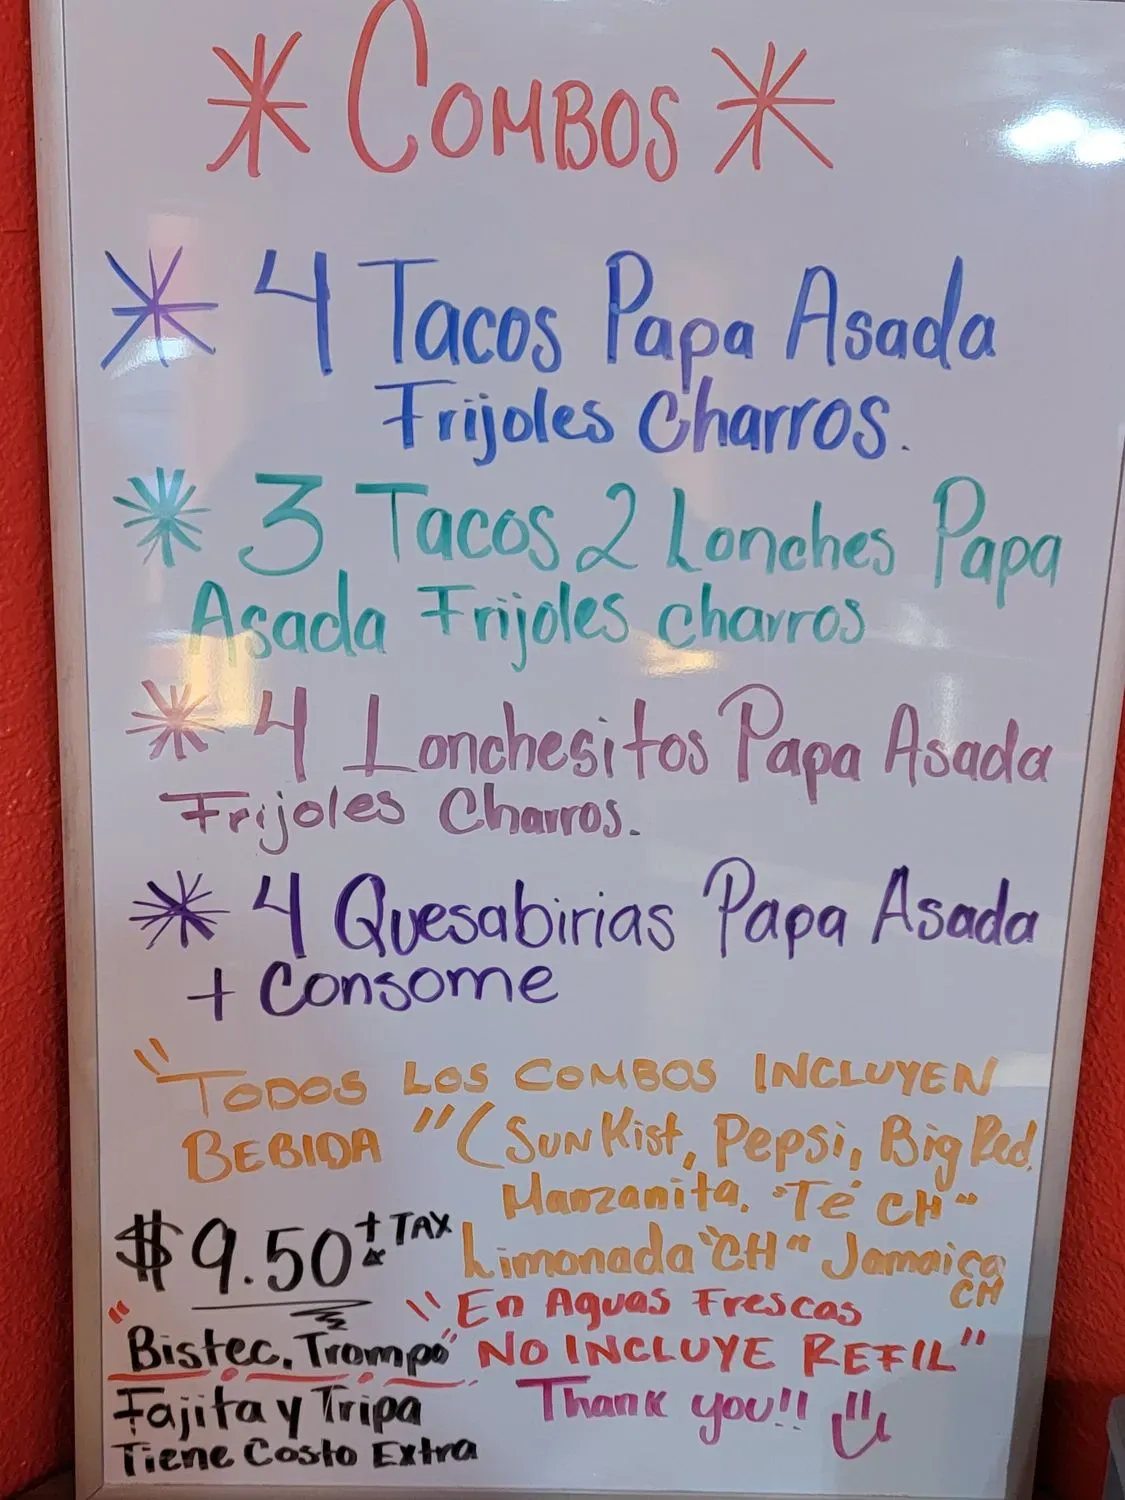 * COMBOS *
* 4 Tacos Papa Asada
Frijoles Charros.
* 3 Tacos 2 Lonches Papa
Asada Frijoles charros
* 4 Lonchesitos Papa Asada
Frijoles Charros.
* 4 Quesabirias Papa Asada
+ Consome
"TODOS LOS COMBOS INCLUYEN
BEBIDA" (SunKist, Pepsi, Big Red,
Manzanita. "Té CH"
Limonada "CH" Jamaica
CH
$9.50 + TAX
"Bistec. Trompo"
Fajita y Tripa
Tiene Costo Extra
"En Aguas Frescas
NO INCLUYE REFIL"
Thank you!!